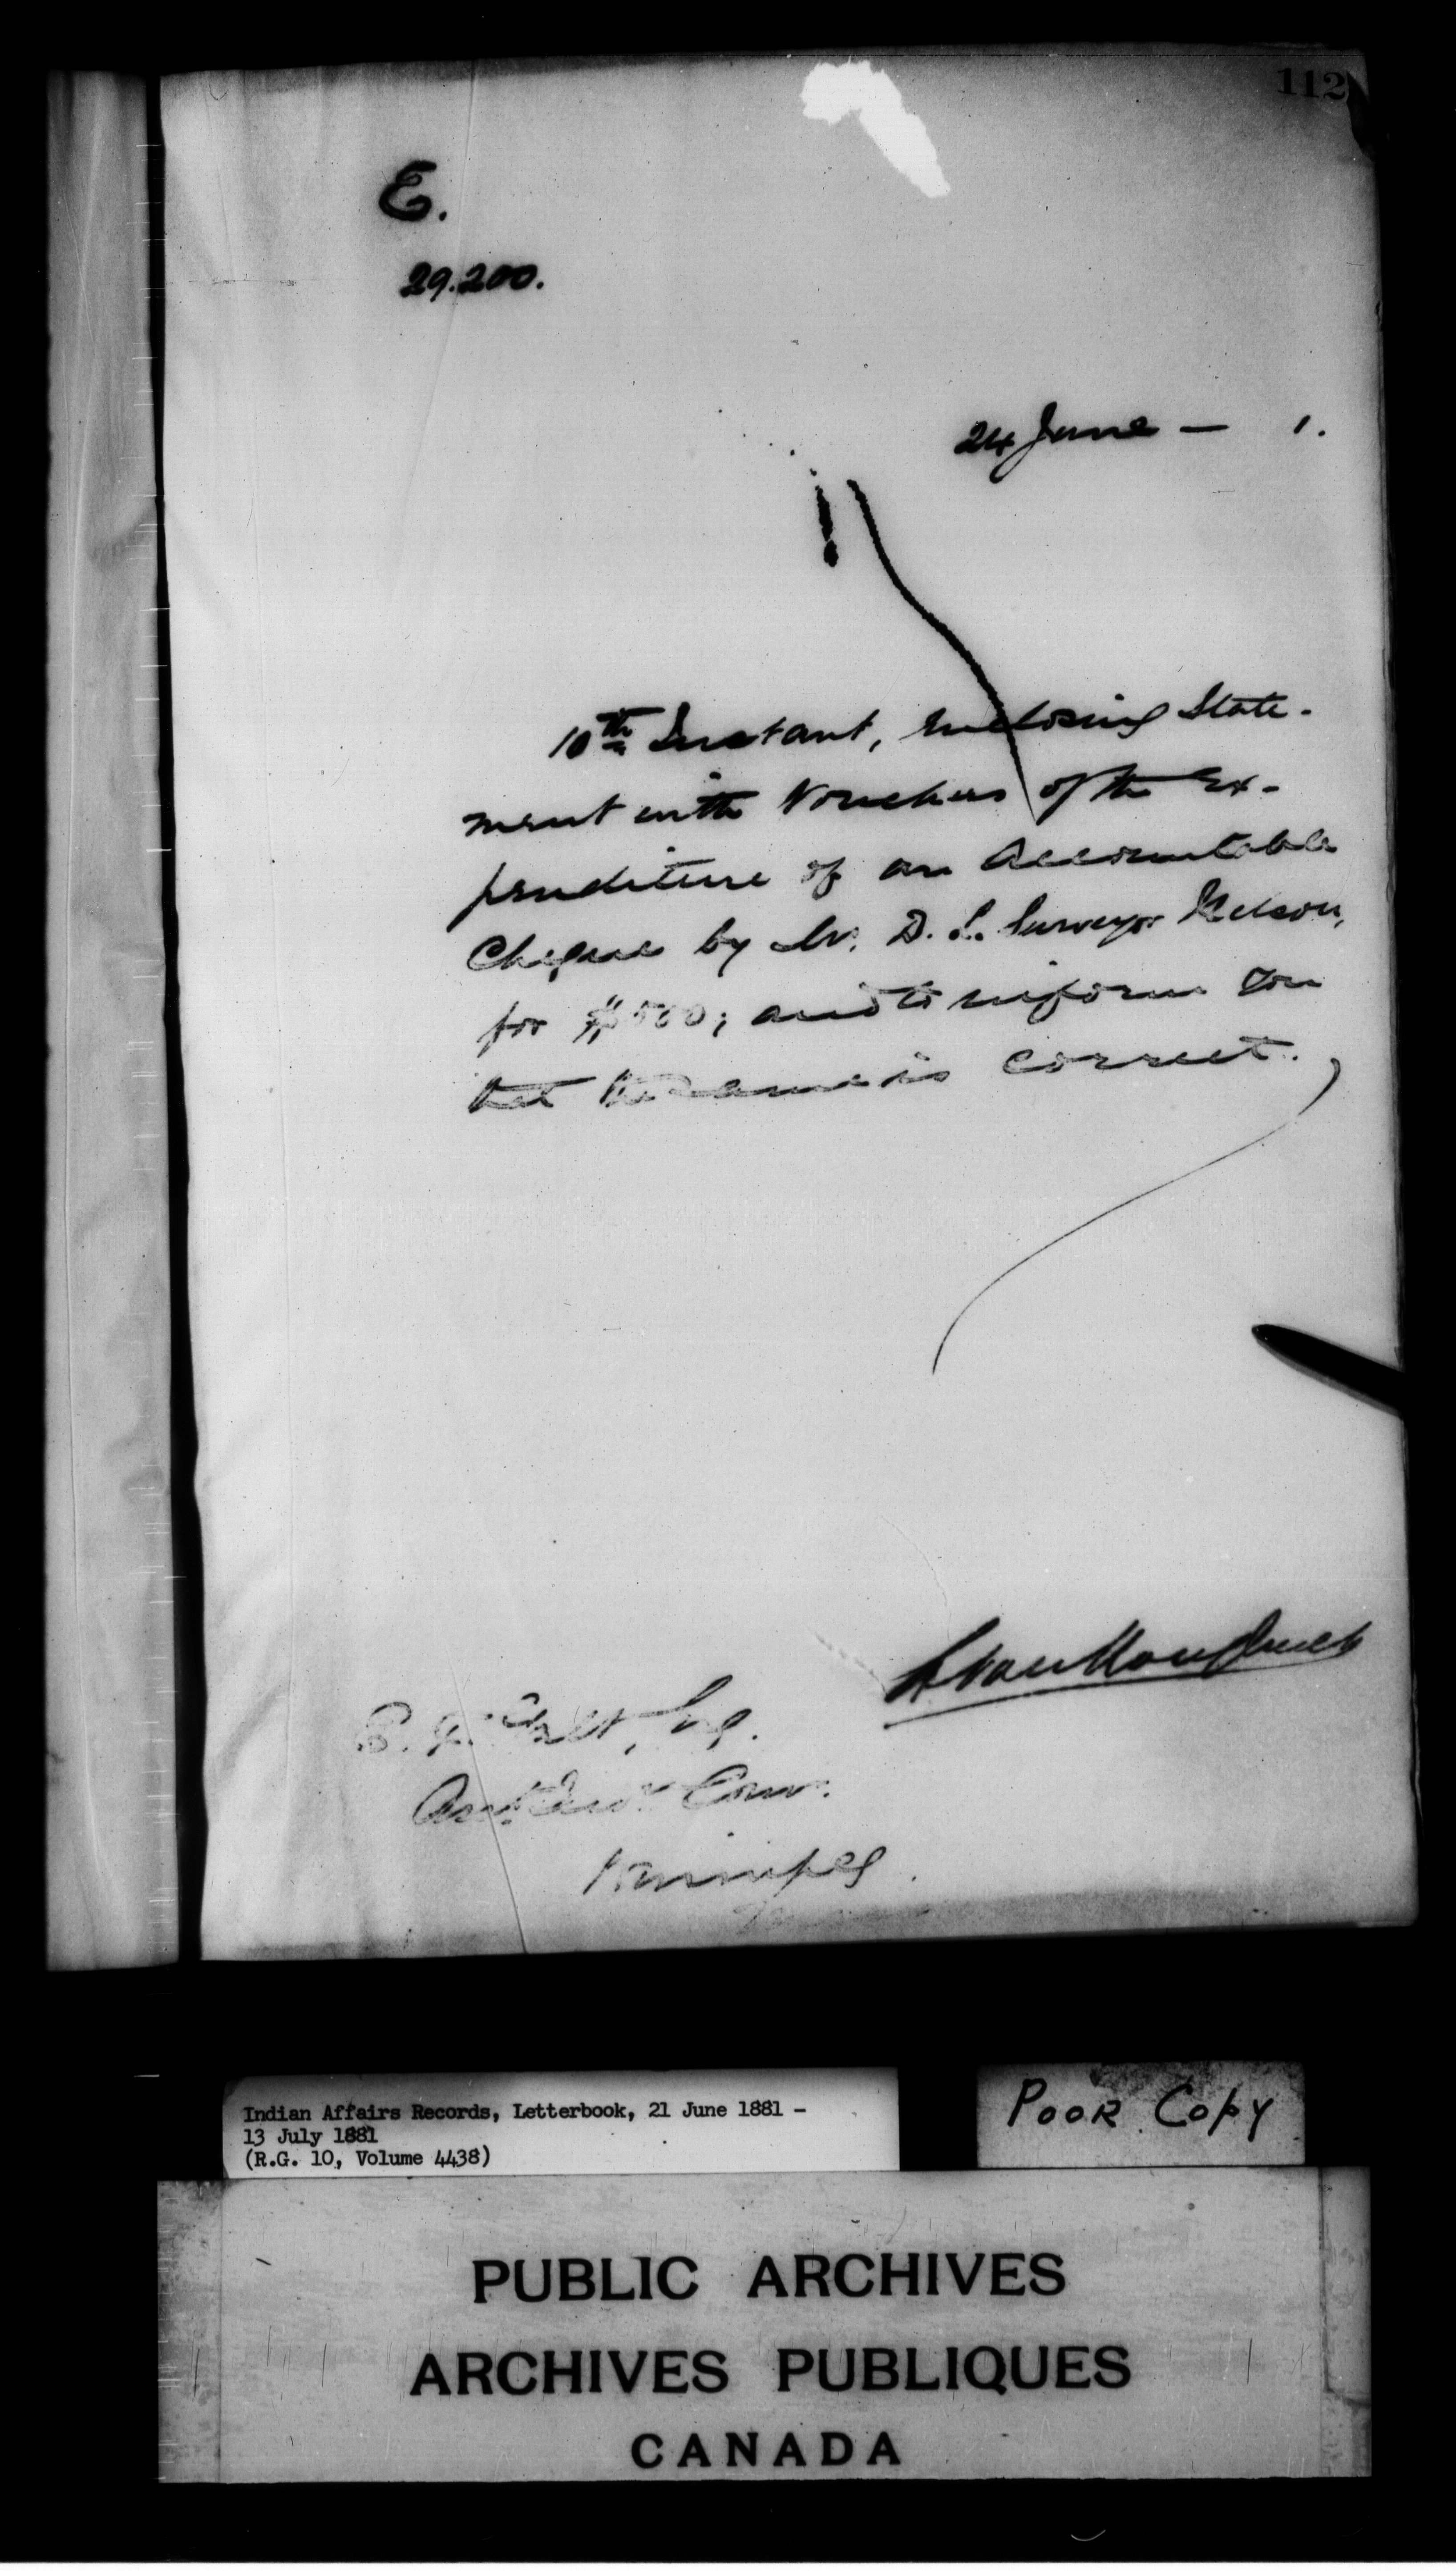 112
E.
29.200.
24 June — 1.
10th Instant, enclosing State-
ment with Vouchers of the Ex-
penditure of an Accountable
Cheque by Mr. D. L. Surveyor Nelson,
for $500; and to inform you
that the same is correct.
L. VanKoughnet
E. T. Galt, Esq.
Asst. Ind. Com.
Winnipeg.
Indian Affairs Records, Letterbook, 21 June 1881 –
13 July 1881
(R.G. 10, Volume 4438)
POOR COPY
PUBLIC ARCHIVES
ARCHIVES PUBLIQUES
CANADA